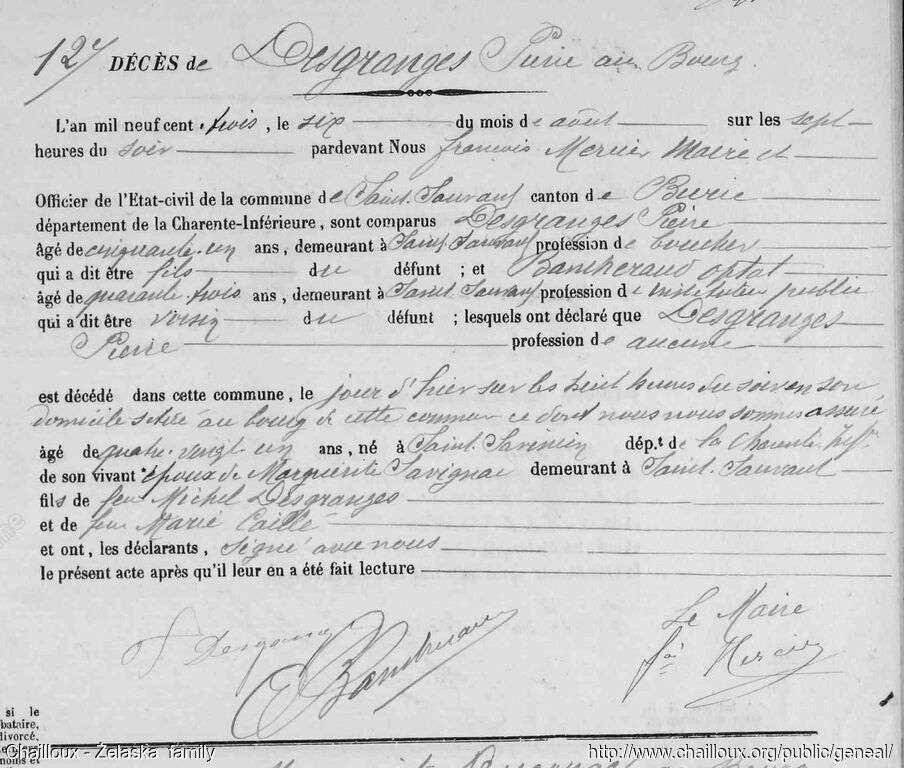 127 DÉCÈS de Desgranges Pierre au Bourg.
L'an mil neuf cent trois, le six du mois de août sur les sept
heures du soir pardevant Nous françois Mercier Maire et
Officier de l'Etat-civil de la commune de Saint-Sauvant canton de Burie
département de la Charente-Inférieure, sont comparus Desgranges Pierre
âgé de cinquante-un ans, demeurant à Saint-Sauvant profession de boucher
qui a dit être fils du défunt ; et optat
âgé de quarante-trois ans, demeurant à Saint-Sauvant profession d instituteur public
qui a dit être voisin du défunt ; lesquels ont déclaré que Desgranges
Pierre profession de aucune
est décédé dans cette commune, le jour d'hier sur les huit heures du soir en son
domicile situé au bourg de cette commune ce dont nous nous sommes assuré
âgé de quatre-vingt-un ans, né à Saint-Savinien dépt. de la Charente Infre
de son vivant époux de Marguerite Savignac demeurant à Saint-Sauvant
fils de feu Michel Desgranges
et de feue Marie Caillé
et ont, les déclarants, signé avec nous
le présent acte après qu'il leur en a été fait lecture
Le Maire
Mercier
si le
bataire,
divorcé,
noms et
Chailloux - Żelaska family
http://www.chailloux.org/public/geneal/